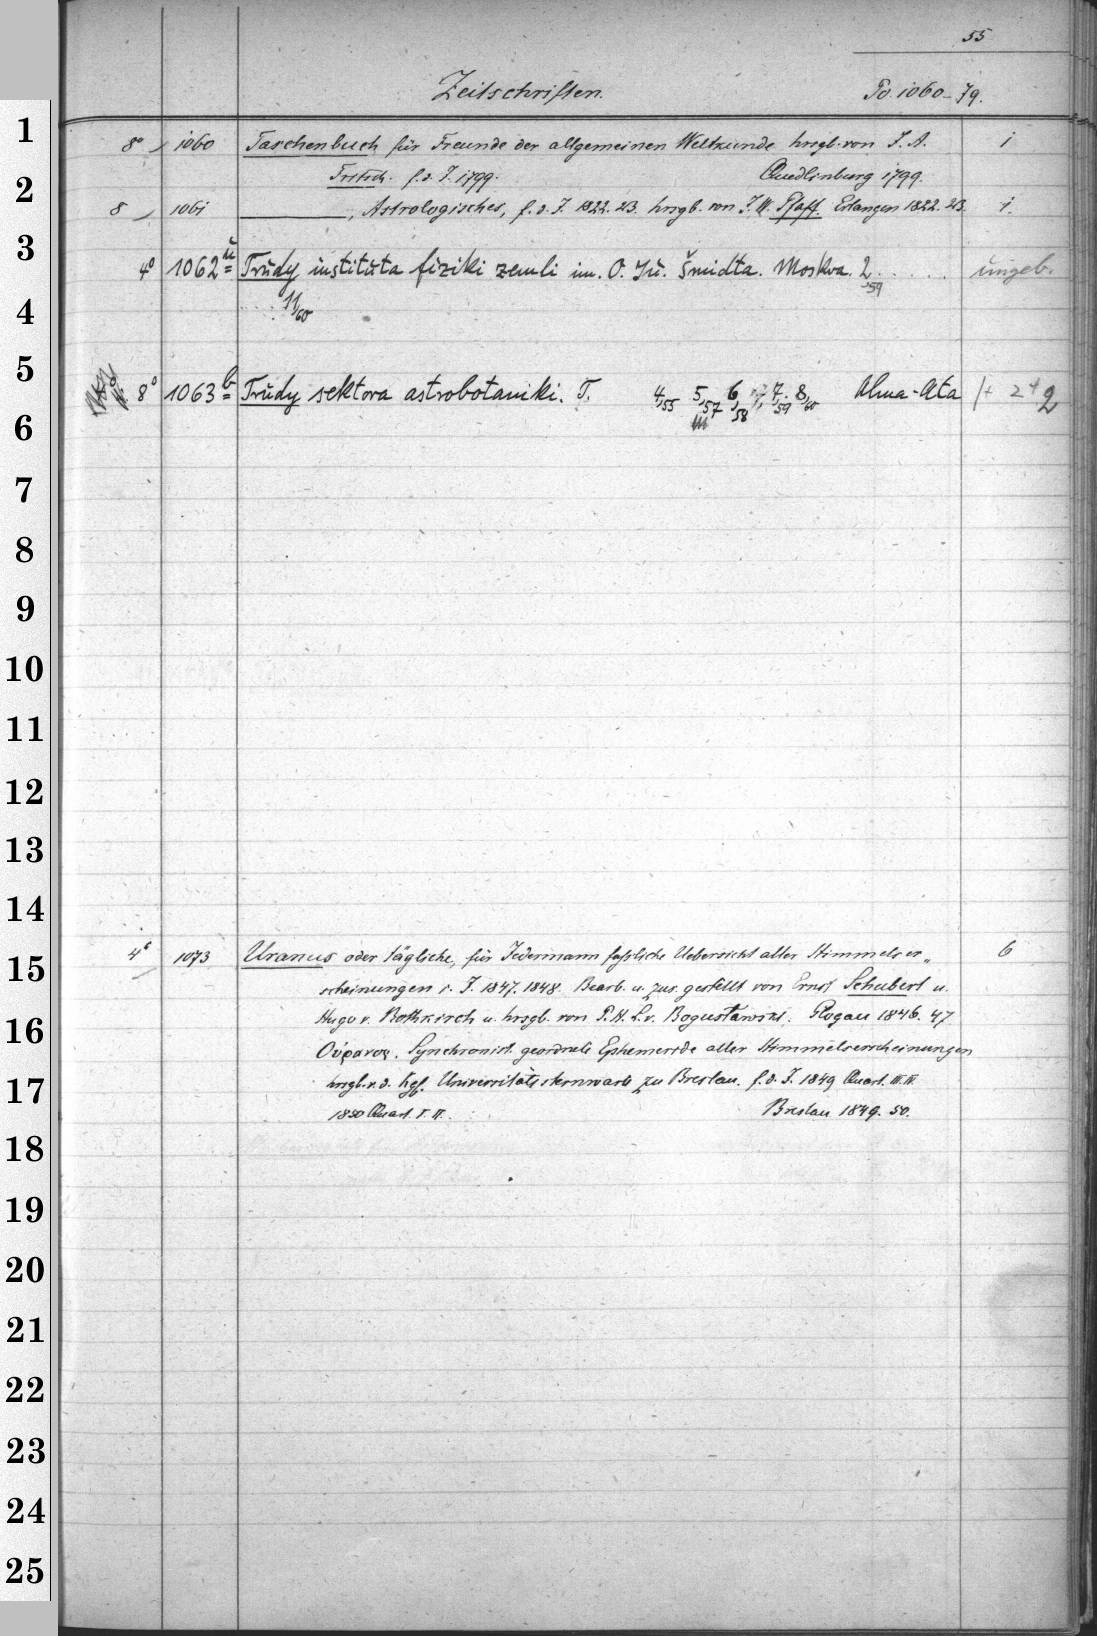 55
Zeitschriften. Po. 1060-79.
1 8° 1060 Taschenbuch für Freunde der allgemeinen Weltkunde hrsgb. von J. A. 1
2 Fritsch. f. d. J. 1799. Quedlinburg 1799.
8 1061 ________, Astrologisches, f. d. J. 1822. 23. hrsgb. von J. W. Pfaff. Erlangen 1822. 23. 1.
3 4° 1062 ü Trŭdy institŭta fiziki zemli im. O. Jŭ. Šmidta. Moskva. 2,59 ..... ŭngeb.
4 11/60
5 8° 1063 b Trŭdy sektora astrobotaniki. T. 4,55 5,57 6,58 7,59 8,60 Alma-Ata 1+ 2+ 2
6
7
8
9
10
11
12
13
14
15 4° 1073 Uranus oder tägliche, für Jedermann faßliche Uebersicht aller Himmelser„ 6
scheinungen i. J. 1847. 1848. Bearb. u. zus. gestellt von Ernst Schubert u.
16 Hugo v. Rothkirch u. hrsgb. von P. H. L. v. Boguslawski. Glogau 1846. 47
Οὐρανος. Synchronist. geordnete Ephemeride aller Himmelserscheinungen
17 hrsgb. v. d. Kgl. Universitätssternwarte zu Breslau. f. d. J. 1849 Quart. III. IV.
1850 Quart. I. II. Breslau 1849. 50.
18
19
20
21
22
23
24
25